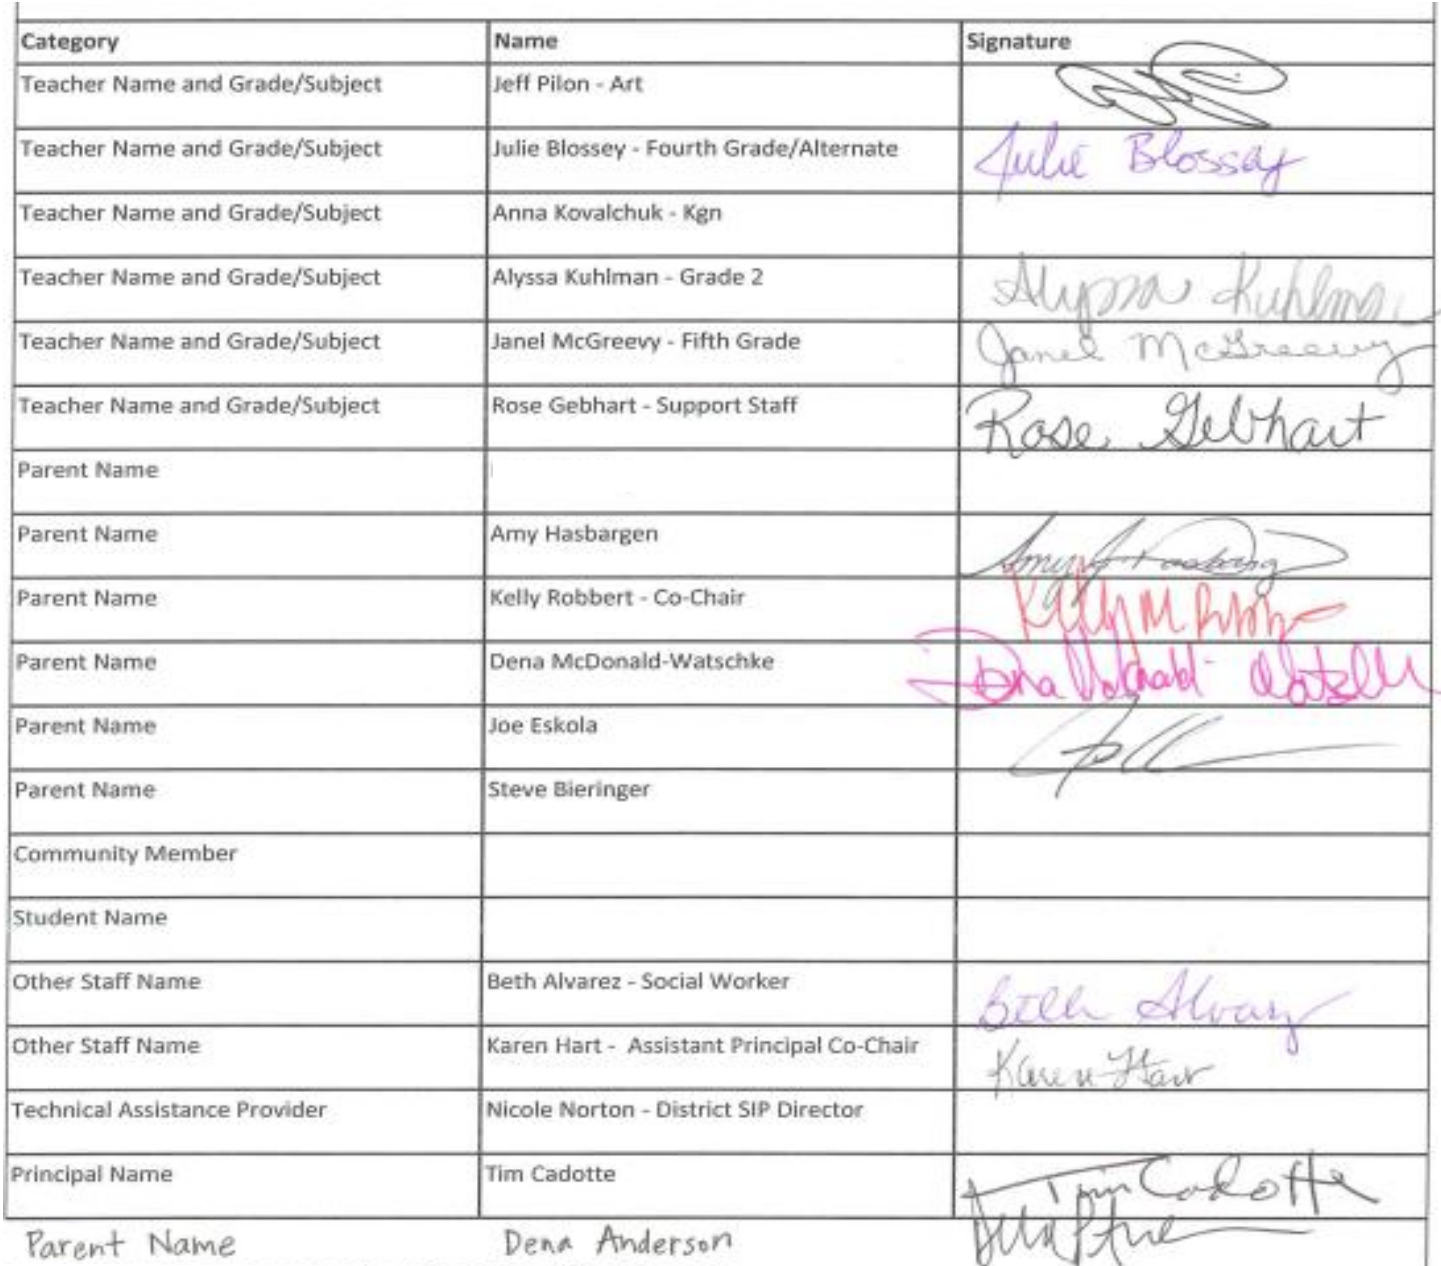 Category Name Signature
Teacher Name and Grade/Subject Jeff Pilon - Art
Teacher Name and Grade/Subject Julie Blossey - Fourth Grade/Alternate Julie Blossey
Teacher Name and Grade/Subject Anna Kovalchuk - Kgn
Teacher Name and Grade/Subject Alyssa Kuhlman - Grade 2 Alyssa Kuhlman
Teacher Name and Grade/Subject Janel McGreevy - Fifth Grade Janel McGreevy
Teacher Name and Grade/Subject Rose Gebhart - Support Staff Rose Gebhart
Parent Name
Parent Name Amy Hasbargen
Parent Name Kelly Robbert - Co-Chair Kelly M
Parent Name Dena McDonald-Watschke Dena
Parent Name Joe Eskola
Parent Name Steve Bieringer
Community Member
Student Name
Other Staff Name Beth Alvarez - Social Worker Beth Alvarez
Other Staff Name Karen Hart - Assistant Principal Co-Chair Karen Hart
Technical Assistance Provider Nicole Norton - District SIP Director
Principal Name Tim Cadotte Tim Cadotte
Parent Name Dena Anderson